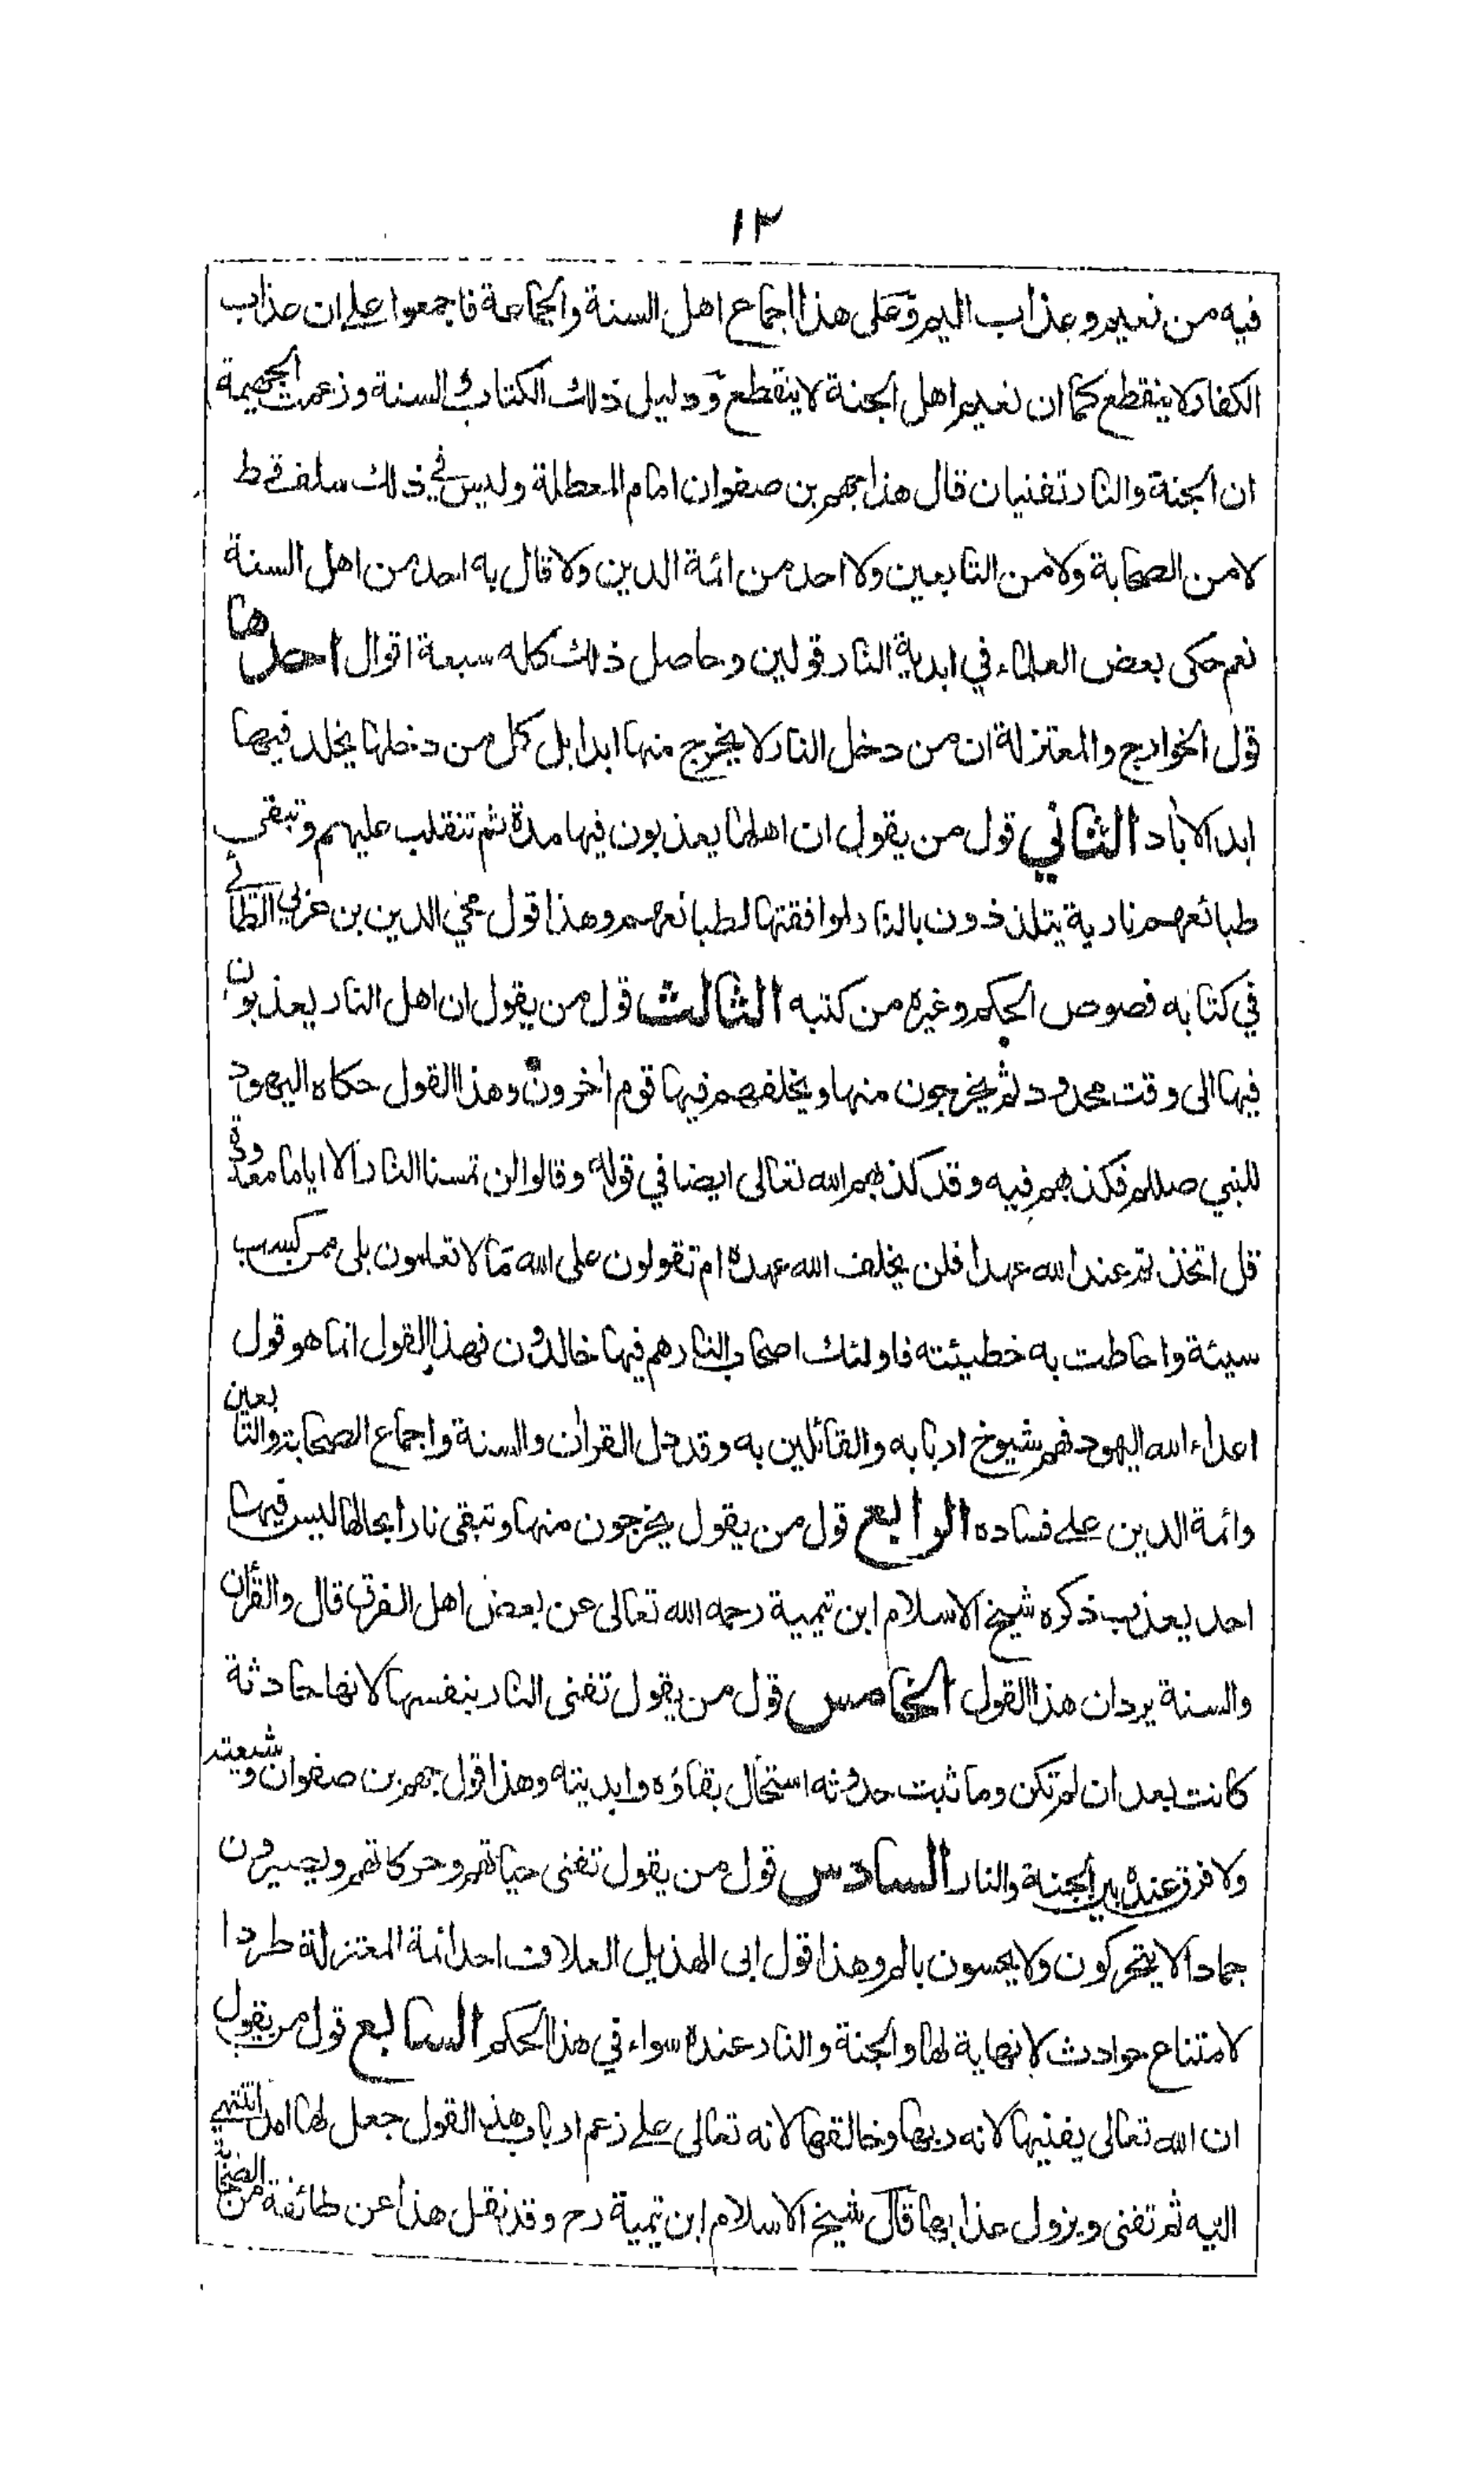 ١٣
فيه من نعيم وعذاب اليم وعلى هذا اجماع اهل السنة والجماعة فاجمعوا على ان عذاب
الكفار لا ينقطع كما ان نعيم اهل الجنة لا ينقطع ودليل ذلك الكتاب والسنة وزعمت الجهمية
ان الجنة والنار تفنيان قال هذا جهم بن صفوان امام المعطلة وليس في ذلك سلف قط
لا من الصحابة ولا من التابعين ولا احد من ائمة الدين ولا قال به احد من اهل السنة
نعم حكى بعض العلماء في ابدية النار قولين وحاصل ذلك كله سبعة اقوال احدها
قول الخوارج والمعتزلة ان من دخل النار لا يخرج منها ابدا بل كل من دخلها يخلد فيها
ابد الاباد الثاني قول من يقول ان اهلها يعذبون فيها مدة ثم تنقلب عليهم وتبقى
طبائعهم نارية يتلذذون بالنار لموافقتها لطبائعهم وهذا قول محي الدين بن عربي الطائي
في كتابه فصوص الحكم وغيره من كتبه الثالث قول من يقول ان اهل النار يعذبون
فيها الى وقت محدود ثم يخرجون منها ويخلفهم فيها قوم اخرون وهذا القول حكاه اليهود
للنبي صللم فكذبهم فيه وقد كذبهم الله تعالى ايضا في قوله وقالوا لن تمسنا النار الا اياما معدودة
قل اتخذتم عند الله عهدا فلن يخلف الله عهده ام تقولون على الله ما لا تعلمون بلى من كسب
سيئة واحاطت به خطيئته فاولئك اصحاب النار هم فيها خالدون فهذا القول انما هو قول
اعداء الله اليهود فهم شيوخ اربابه والقائلين به وقد دل القران والسنة واجماع الصحابة والتابعين
وائمة الدين على فساده الرابع قول من يقول يخرجون منها وتبقى نارا بحالها ليس فيها
احد يعذب ذكره شيخ الاسلام ابن تيمية رحمه الله تعالى عن بعض اهل الفرق قال والقرأن
والسنة يردان هذا القول الخامس قول من يقول تفنى النار بنفسها لانها حادثة
كانت بعد ان لم تكن وما ثبت حدوثه استحال بقاؤه وابديته وهذا قول جهم بن صفوان وشيعته
ولا فرق عنده بين الجنة والنار السادس قول من يقول تفنى حياتهم وحركاتهم ويصيرون
جمادا لا يتحركون ولا يحسون بالم وهذا قول ابى الهذيل العلاف احد ائمة المعتزلة طردا
لامتناع حوادث لا نهاية لها والجنة والنار عنده سواء في هذا الحكم السابع قول من يقول
ان الله تعالى يفنيها لانه ربها وخالقها لانه تعالى على زعم ارباب هذا القول جعل لها امدا تنتهي
اليه ثم تفنى ويزول عذابها قال شيخ الاسلام ابن تيمية رح وقد نقل هذا عن طائفة من الصحابة